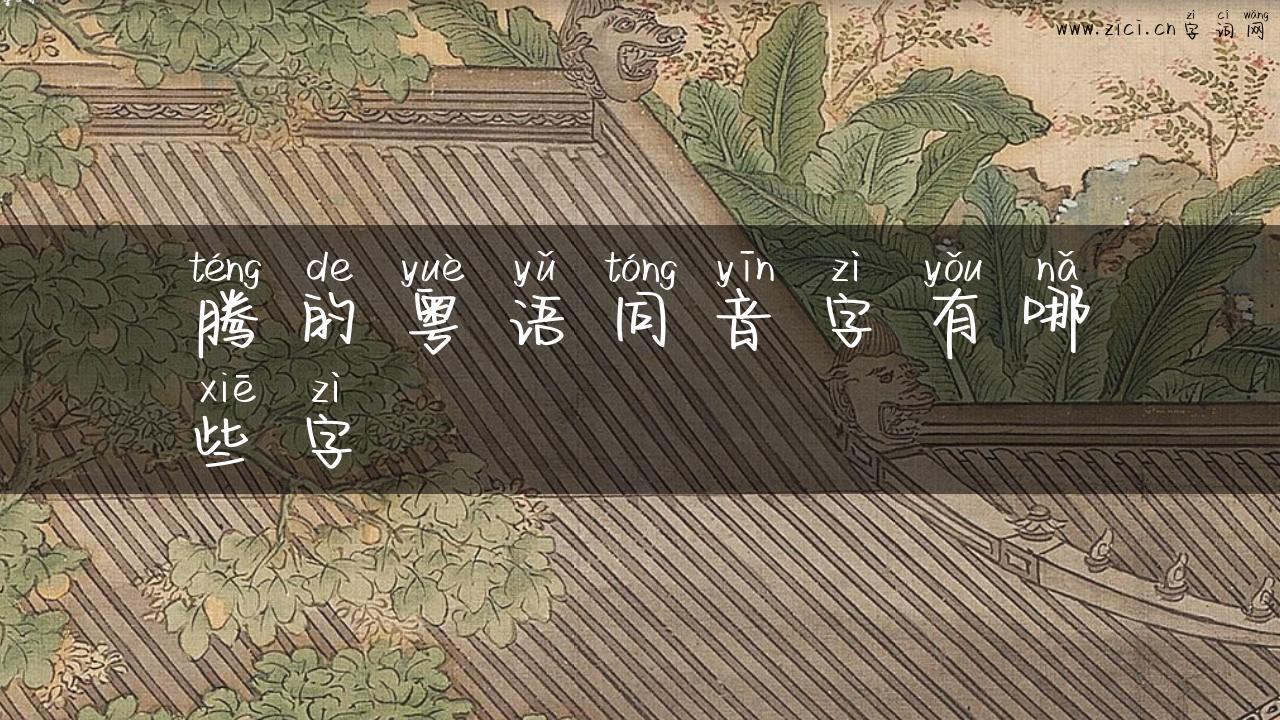 zì cí wǎng
www.zici.cn 字 词 网
téng de yuè yǔ tóng yīn zì yǒu nǎ
腾 的 粤 语 同 音 字 有 哪
xiē zì
些 字